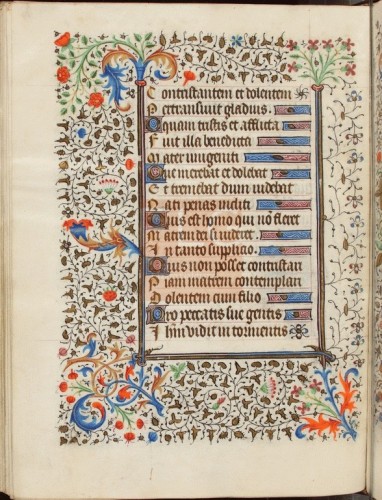 Contristantem et dolentem
Pertransivit gladius.
O quam tristis et afflicta
Fuit illa benedicta
Mater unigeniti
Que merebat et dolebat
Et tremebat dum videbat
Nati penas incliti
Quis est homo qui nō fleret
Matrem dei si videret
In tanto supplicio.
Quis non posset contristari
Piam matrem contemplari
Dolentem cum filio
Pro peccatis sue gentis
Ihm vidit in tormentis